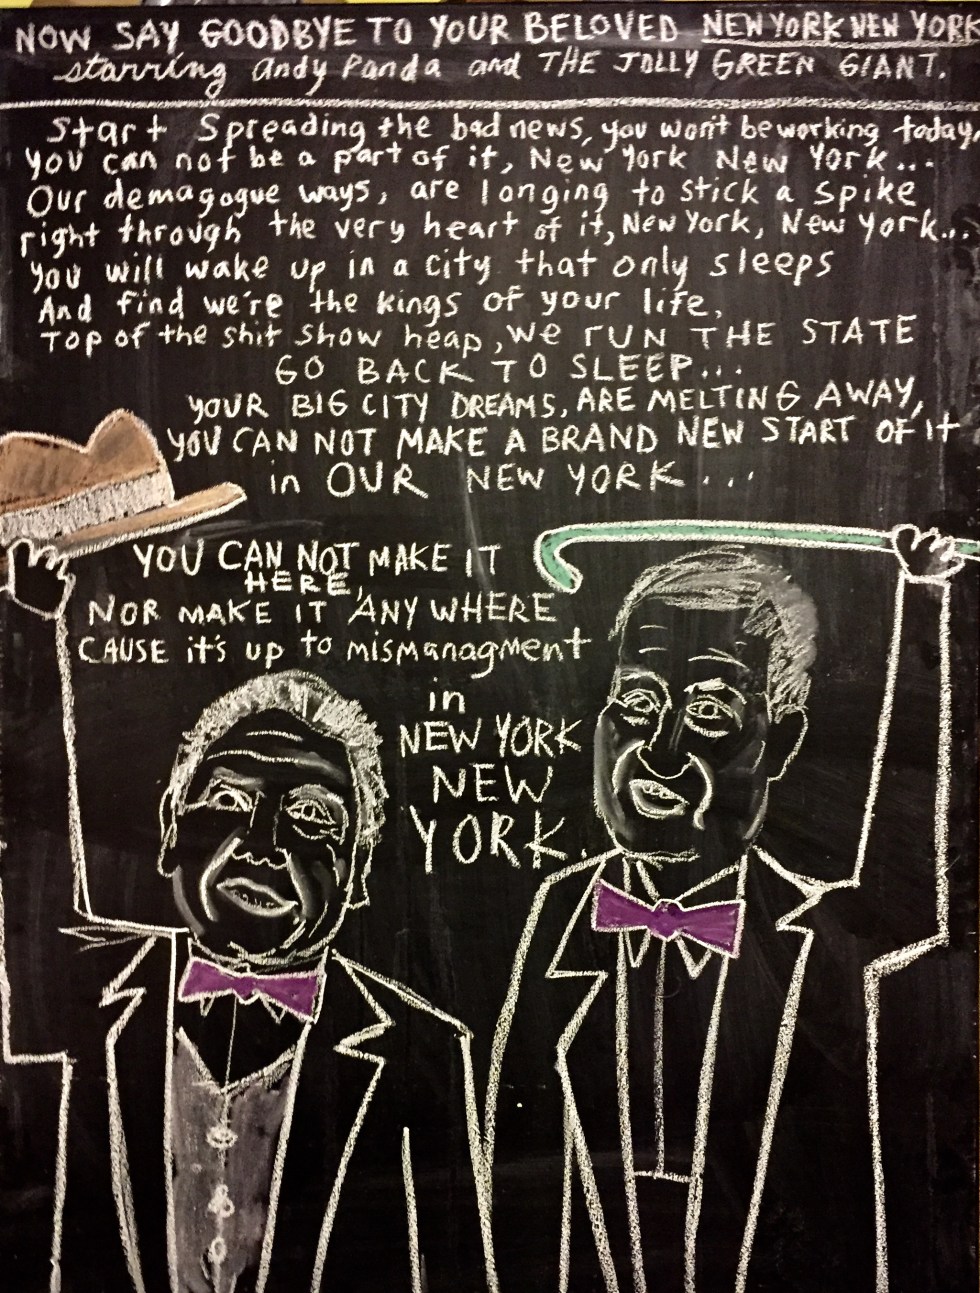 NOW SAY GOODBYE TO YOUR BELOVED NEW YORK NEW YORK
starring Andy Panda and THE JOLLY GREEN GIANT.
Start Spreading the bad news, you won't be working today
you can not be a part of it, New York New York...
Our demagogue ways, are longing to stick a spike
right through the very heart of it, New York, New York...
you will wake up in a city that only sleeps
And find we're the kings of your life,
TOP of the shit show heap, we RUN THE STATE
GO BACK TO SLEEP...
YOUR BIG CITY DREAMS, ARE MELTING AWAY,
YOU CAN NOT MAKE A BRAND NEW START OF it
in OUR NEW YORK...
YOU CAN NOT MAKE IT
HERE,
NOR MAKE IT ANY WHERE
CAUSE it's up to mismanagment
in
NEW YORK
NEW
YORK.